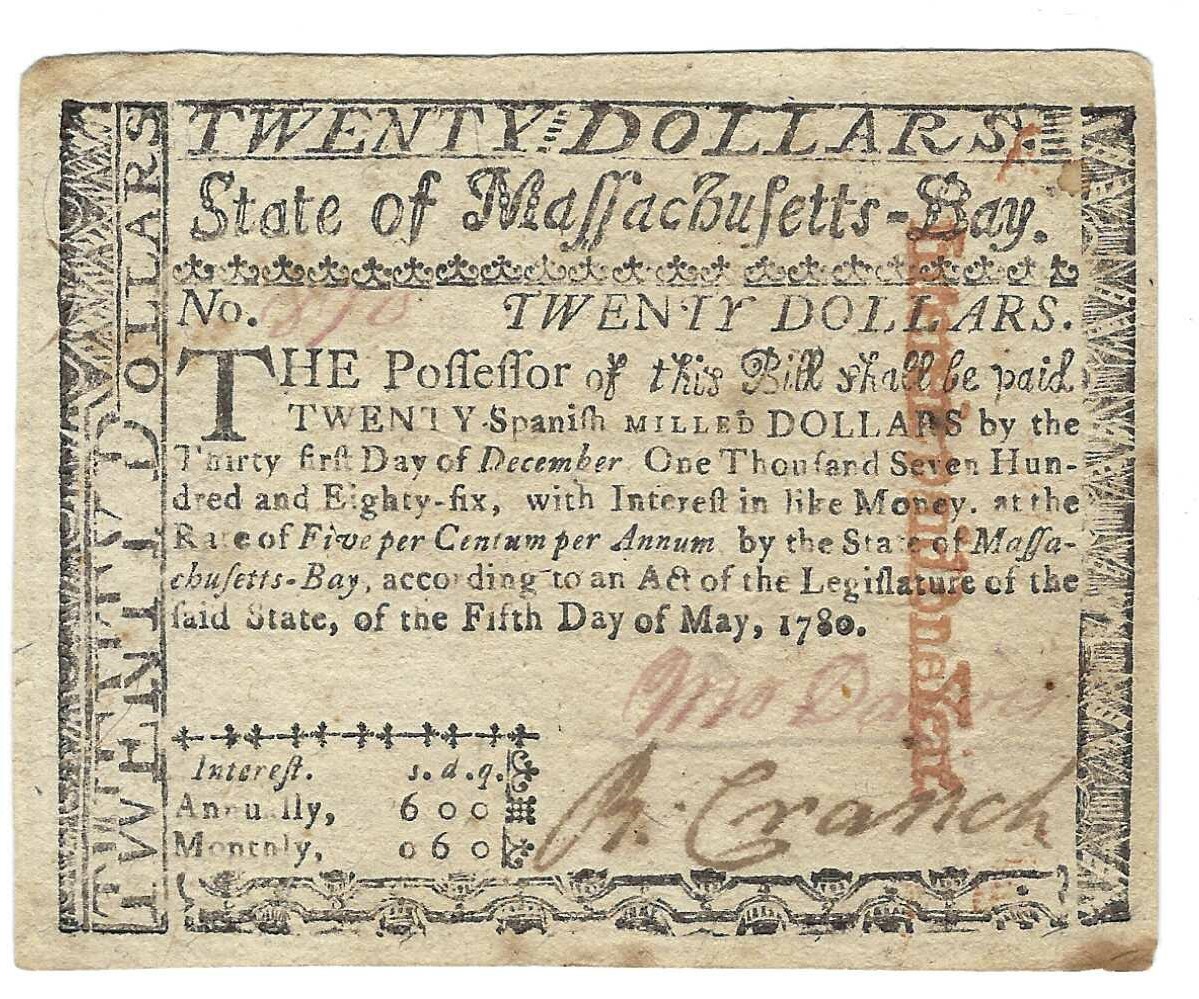 TWENTY DOLLARS.
State of Maſſachuſetts-Bay.
No.
TWENTY DOLLARS.
THE Poſſeſſor of this Bill shall be paid
TWENTY Spaniſh MILLED DOLLARS by the
Thirty firſt Day of December One Thouſand Seven Hun-
dred and Eighty-fix, with Intereſt in like Money. at the
Rate of Five per Centum per Annum by the State of Maſſa-
chuſetts-Bay, according to an Act of the Legiſlature of the
ſaid State, of the Fifth Day of May, 1780.
Intereſt. s. d. q.
Annually, 6 0 0
Monthly, 0 6 0
R. Cranch
TWENTY DOLLARS
Intereſt paid one Year